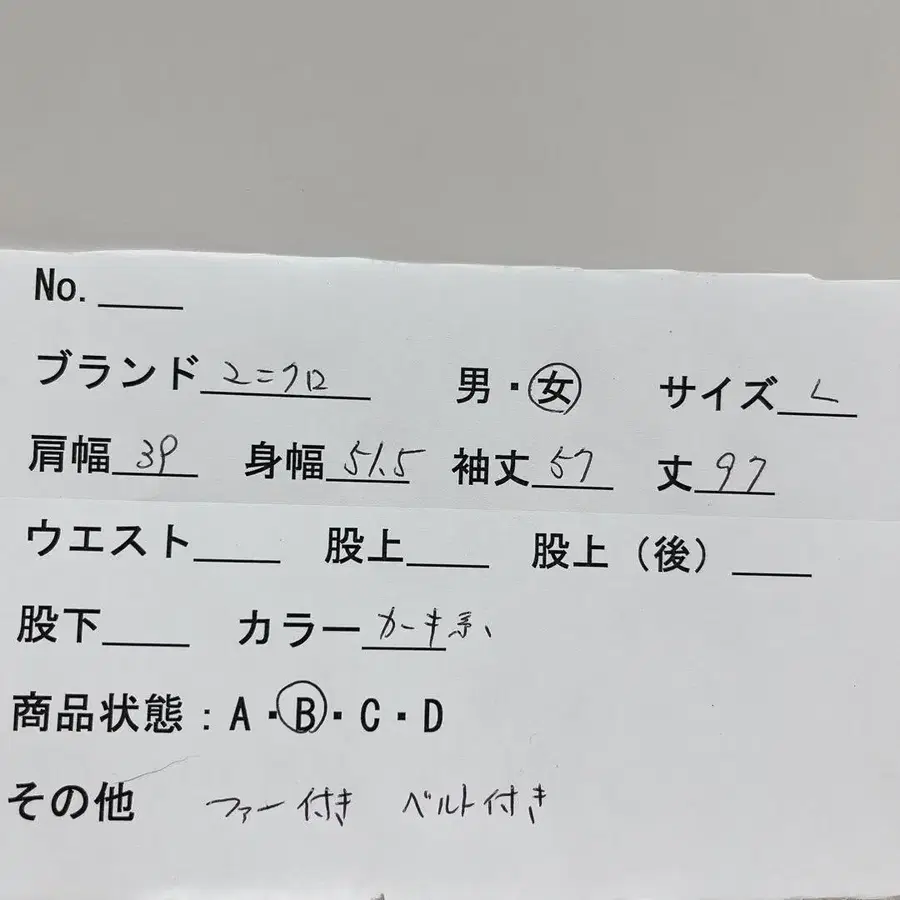 No.____
ブランド ユニクロ 男・女 サイズ L
肩幅 39 身幅 51.5 袖丈 57 丈 97
ウエスト____ 股上____ 股上（後）____
股下____ カラー カーキ系
商品状態：A・B・C・D
その他 ファー付き ベルト付き